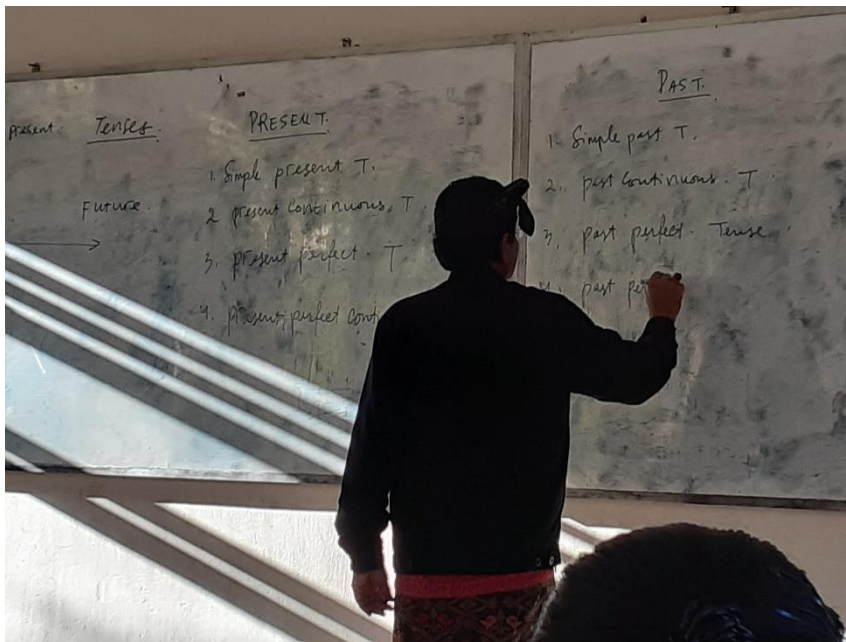 present. Tenses.
Future.
PRESENT.
1. Simple present T.
2 present continuous. T.
3. present perfect. T
4. present perfect conti
PAST.
1. Simple past T.
2. past continuous. T.
3. past perfect. Tense
4. past pe